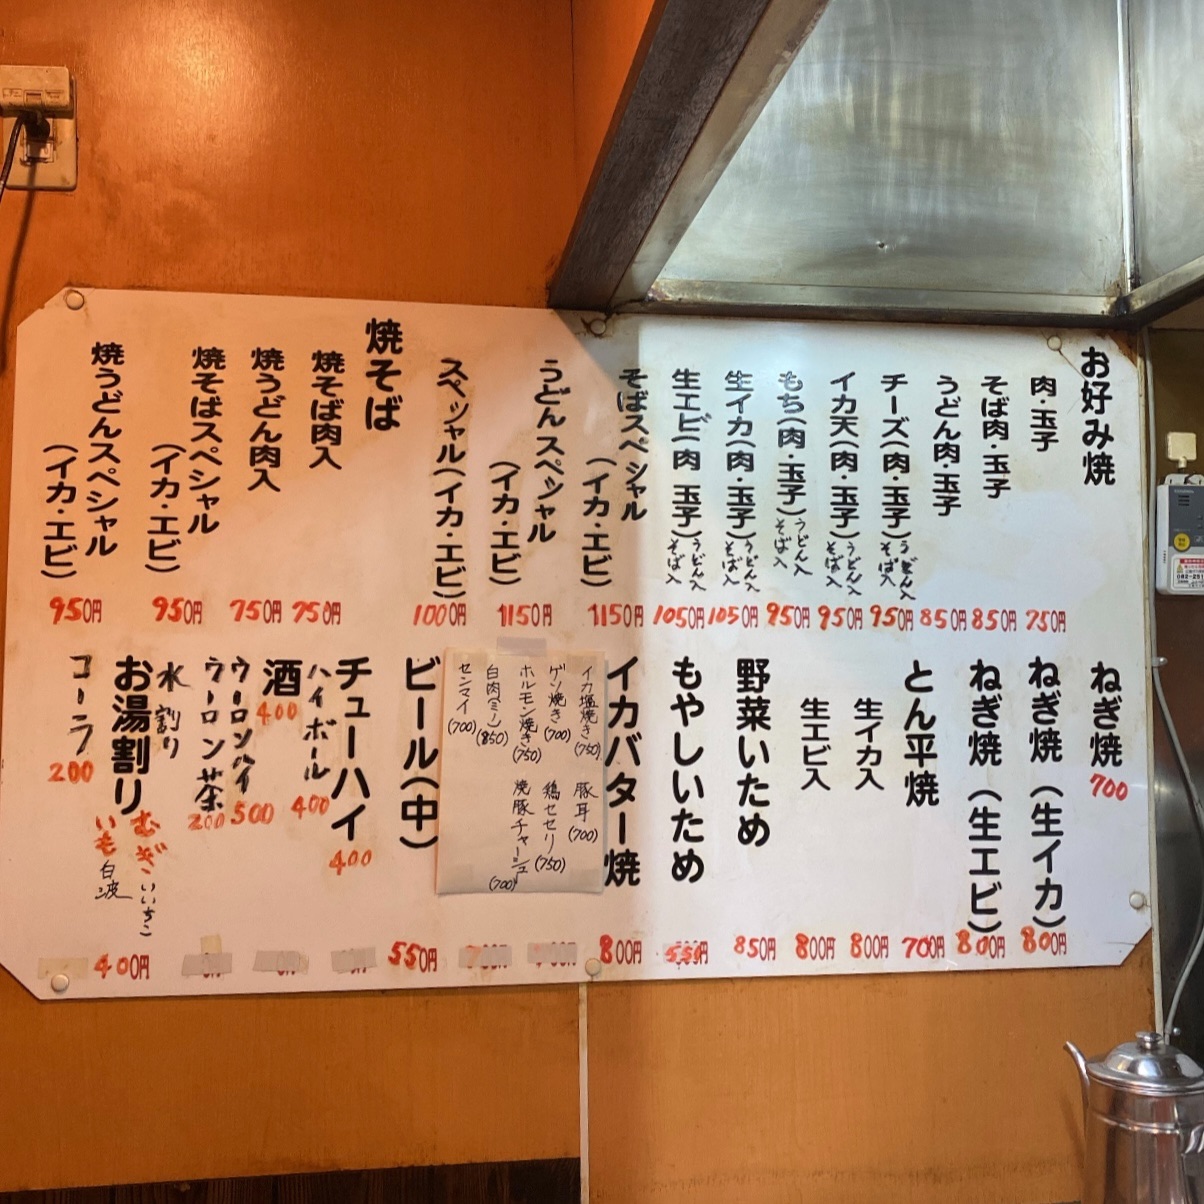 お好み焼
肉・玉子 750円
そば肉・玉子 850円
うどん肉・玉子 850円
チーズ(肉・玉子) うどん入 そば入 950円
イカ天(肉・玉子) うどん入 そば入 950円
もち(肉・玉子) うどん入 そば入 950円
生イカ(肉・玉子) うどん入 そば入 1050円
生エビ(肉 玉子) うどん入 そば入 1050円
そばスペシャル
(イカ・エビ) 1150円
うどんスペシャル
(イカ・エビ) 1150円
スペシャル(イカ・エビ) 1000円
焼そば
焼そば肉入 750円
焼うどん肉入 750円
焼そばスペシャル
(イカ・エビ) 950円
焼うどんスペシャル
(イカ・エビ) 950円
ねぎ焼 700
ねぎ焼(生イカ) 800円
ねぎ焼(生エビ) 800円
とん平焼 700円
生イカ入 800円
生エビ入 800円
野菜いため 850円
もやしいため 550円
イカバター焼 800円
イカ塩焼き(750) 豚耳(700)
ゲソ焼き(700) 鶏セセリ(750)
ホルモン焼き(750) 焼豚チャーシュー(700)
白肉(ミノ)(850)
センマイ(700)
ビール(中) 550円
チューハイ 400
ハイボール 400
酒 400
ウーロンハイ 500
ウーロン茶 200
水割り
お湯割り 400円
むぎ いいちこ
いも 白波
コーラ 200